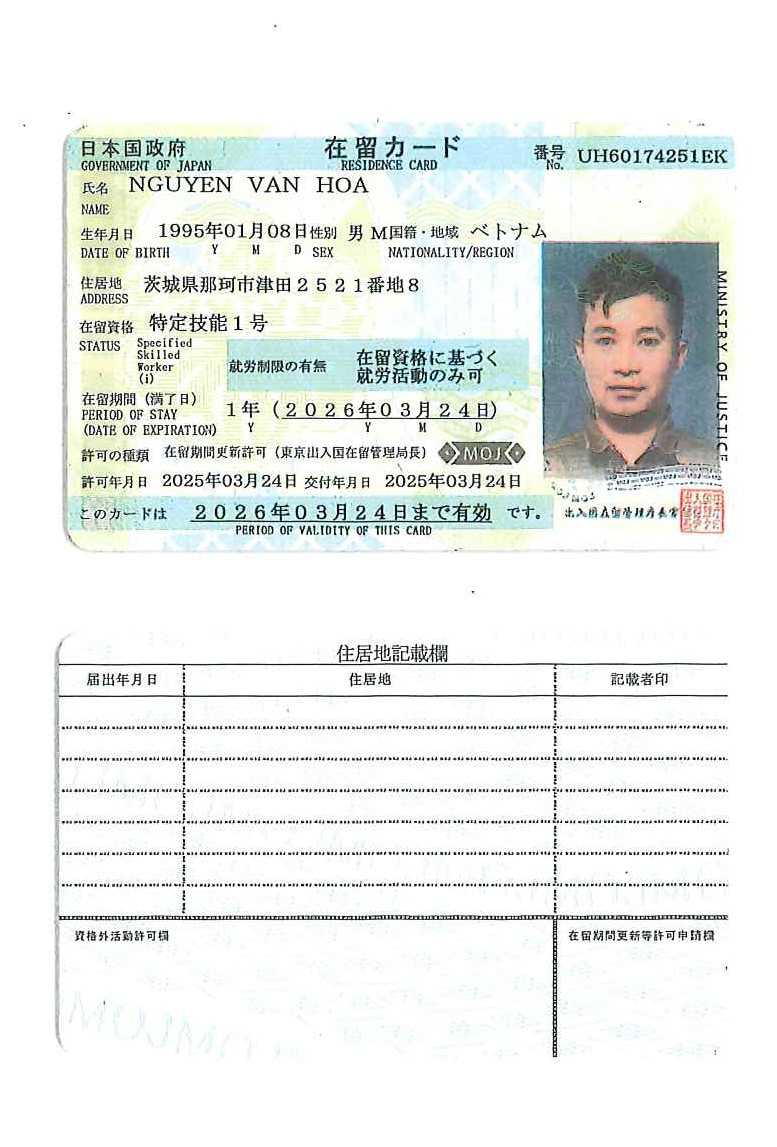 日本国政府 在留カード 番号 UH60174251EK
GOVERNMENT OF JAPAN RESIDENCE CARD No.
氏名 NGUYEN VAN HOA
NAME
生年月日 1995年01月08日 性別 男 M 国籍・地域 ベトナム
DATE OF BIRTH Y M D SEX NATIONALITY/REGION
住居地 茨城県那珂市津田2521番地8
ADDRESS
在留資格 特定技能1号
STATUS Specified
Skilled
Worker
(i)
就労制限の有無 在留資格に基づく
就労活動のみ可
在留期間(満了日) 1年(2026年03月24日)
PERIOD OF STAY
(DATE OF EXPIRATION) Y Y M D
許可の種類 在留期間更新許可(東京出入国在留管理局長) MOJ
許可年月日 2025年03月24日 交付年月日 2025年03月24日
このカードは 2026年03月24日まで有効 です。
PERIOD OF VALIDITY OF THIS CARD
MINISTRY OF JUSTICE
出入国在留管理庁長官
住居地記載欄
届出年月日 住居地 記載者印
資格外活動許可欄 在留期間更新等許可申請欄